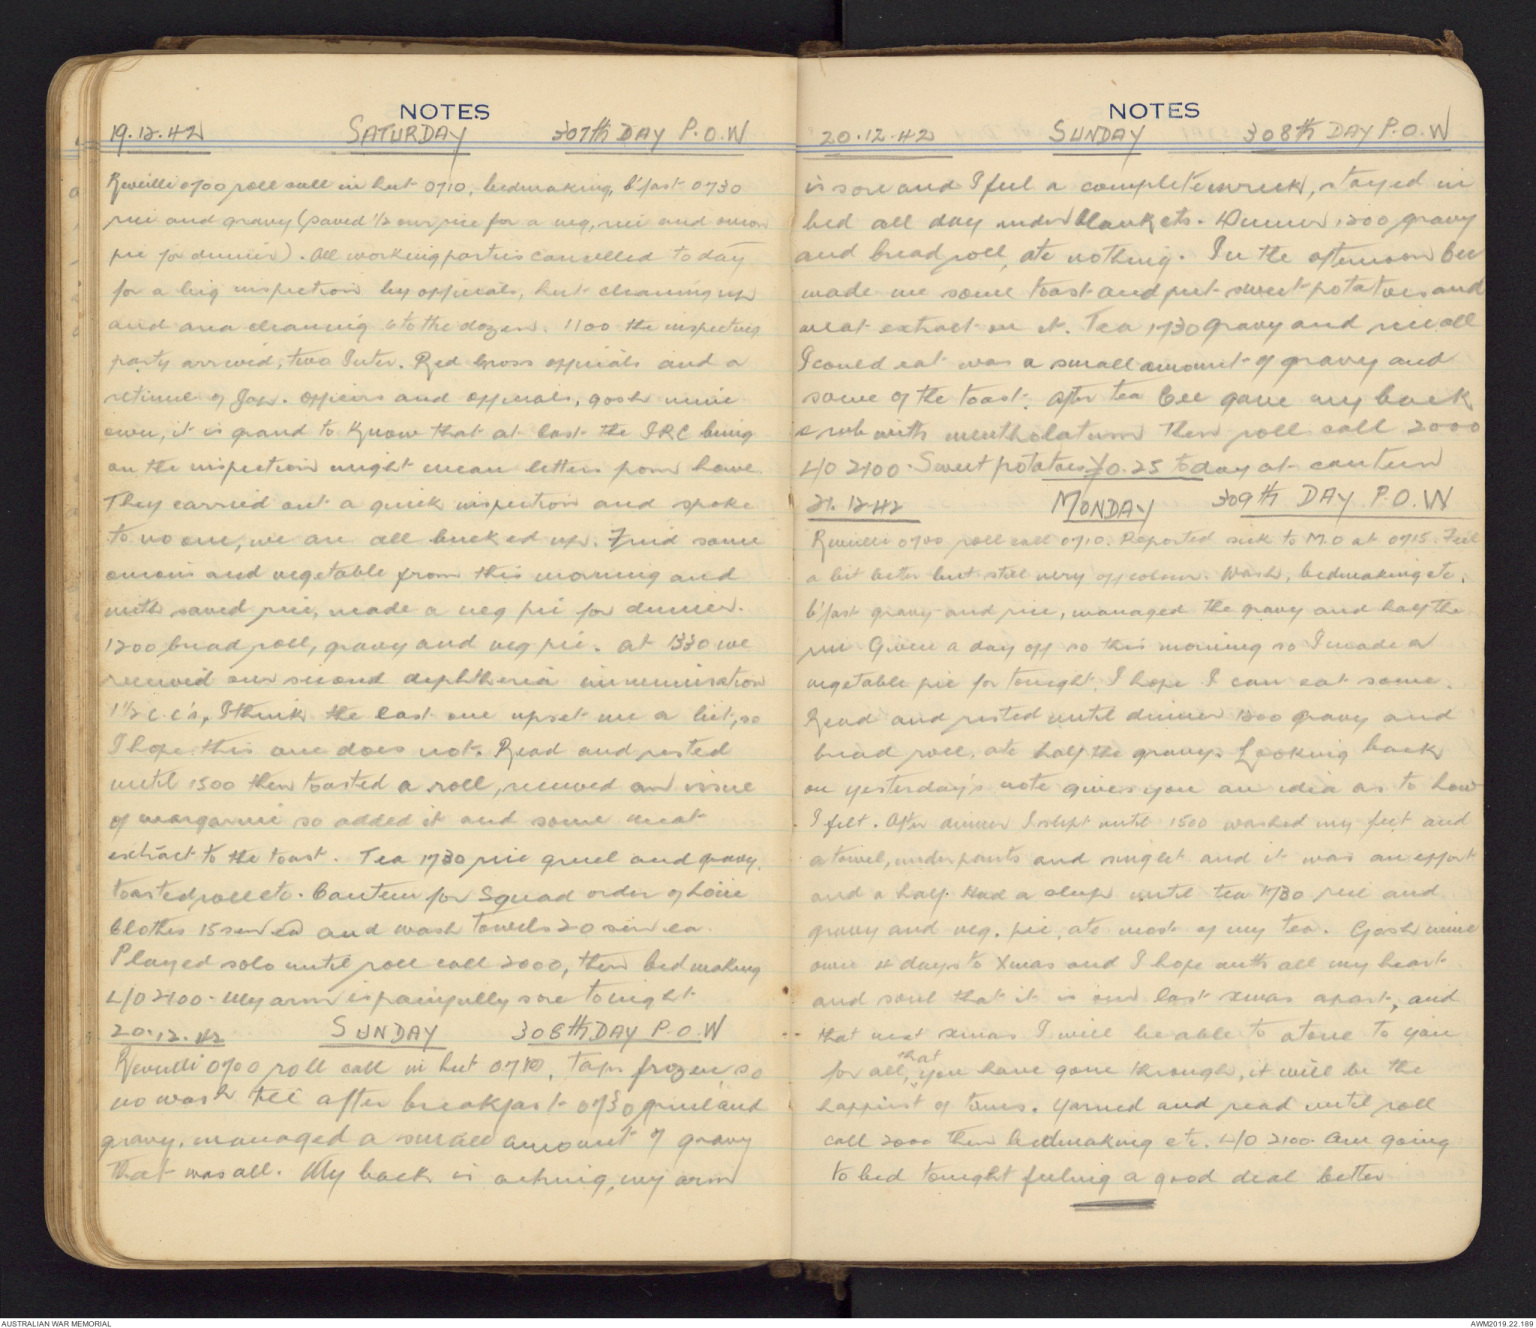 NOTES
19.12.42 SATURDAY 307th DAY P.O.W
Reveille 0700 roll call in hut 0710, bedmaking, b'fast 0730
rice and gravy (saved 1/2 our rice for a veg, rice and onion
pie for dinner). All working parties cancelled to day
for a big inspection by officials, hut cleaning up
and area cleaning to the dozen. 1100 the inspecting
party arrived, two Inter. Red Cross officials and a
retinue of Jap. officers and officials, gosh mine
own, it is grand to know that at last the IRC being
on the inspection might mean letters from home.
They carried out a quick inspection and spoke
to no one, we are all bucked up. Fried some
onions and vegetable from this morning and
with saved rice, made a veg pie for dinner.
1200 bread roll, gravy and veg pie. at 1330 we
received our second diphtheria immunisation
1 1/2 c.c's, I think the last one upset me a bit, so
I hope this one does not. Read and rested
until 1500 then toasted a roll, received an issue
of margarine so added it and some meat
extract to the toast. Tea 1730 rice gruel and gravy,
toasted roll etc. Canteen for Squad order of
Clothes 15 sen ea and wash towels 20 sen ea.
Played solo until roll call 2000, then bedmaking
L/O 2100. My arm is painfully sore tonight
20.12.42 SUNDAY 308th DAY P.O.W
Reveille 0700 roll call in hut 0710, taps frozen, so
no wash till after breakfast 0730 gruel and
gravy, managed a small amount of gravy
that was all. My back is aching, my arm
NOTES
20.12.42 SUNDAY 308th DAY P.O.W
is sore and I feel a complete wreck, stayed in
bed all day under blankets. Dinner 1200 gravy
and bread roll, ate nothing. In the afternoon Cec
made me some toast and put sweet potatoes and
meat extract on it. Tea 1730 gravy and rice all
I could eat was a small amount of gravy and
some of the toast. After tea Cec gave my back
a rub with mentholatum then roll call 2000
L/O 2100. Sweet potatoes ¥0.25 today at canteen
21.12.42 MONDAY 309th DAY P.O.W
Reveille 0700 roll call 0710. Reported sick to M.O at 0715. Feel
a bit better but still very off colour. Wash, bedmaking etc,
b'fast gravy and rice, managed the gravy and half the
rice Given a day off so this morning so I made a
vegetable pie for tonight, I hope I can eat some.
Read and rested until dinner 1200 gravy and
bread roll, ate half the gravy. Looking back
on yesterday's note gives you an idea as to how
I felt. After dinner I slept until 1500 washed my feet and
a towel, underpants and singlet and it was an effort
and a half. Had a sleep until tea 1730 rice and
gravy and veg. pie, ate most of my tea. Gosh mine
own 4 days to Xmas and I hope with all my heart
and soul that it is our last xmas apart, and
that next xmas I will be able to atone to you
for all, that you have gone through, it will be the
happiest of times. Yarned and read until roll
call 2000 then bedmaking etc. L/O 2100. Am going
to bed tonight feeling a good deal better
AUSTRALIAN WAR MEMORIAL
AWM2019.22.189